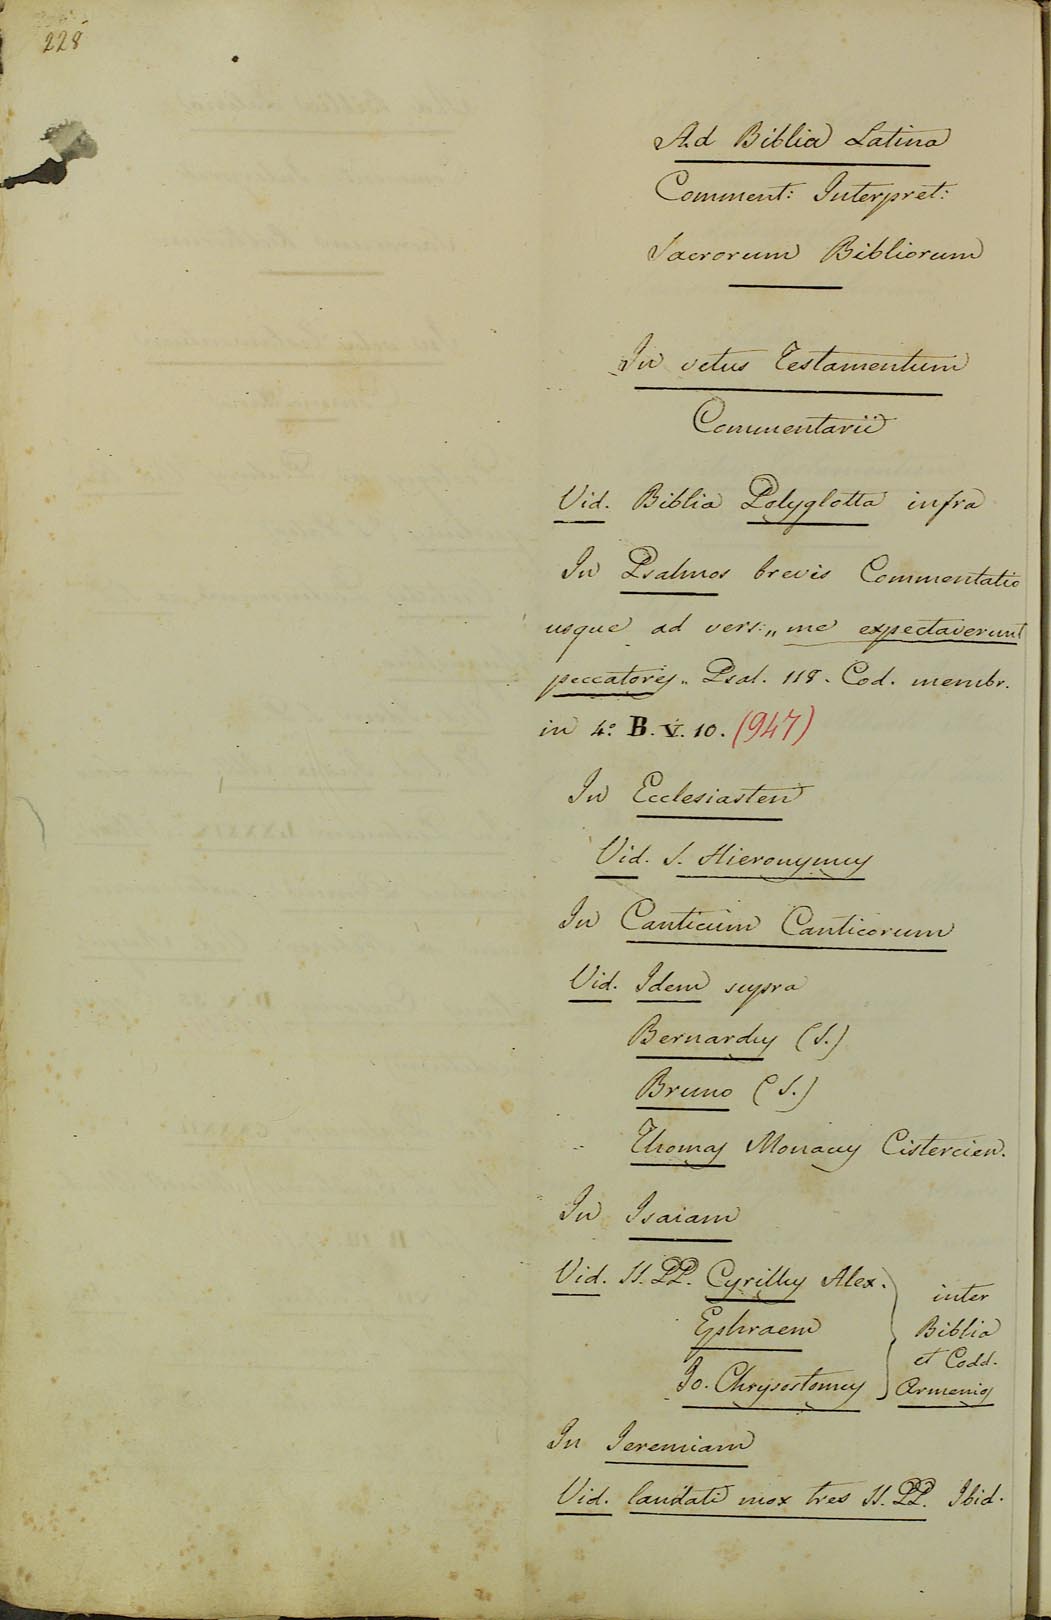 228
Ad Biblia Latina
Comment: Interpret:
Sacrorum Bibliorum
In vetus Testamentum
Commentarii
Vid. Biblia Polyglotta infra
In Psalmos brevis Commentatio
usque ad vers: „ me expectaverunt
peccatores „ Psal. 118. Cod. membr.
in 4º B. V. 10. (947)
In Ecclesiasten
Vid. S. Hieronymus
In Canticum Canticorum
Vid. Idem supra
Bernardus (S.)
Bruno (S.)
Thomas Monacus Cistercien.
In Isaiam
Vid. SS. PP. Cyrillus Alex.
Ephraem
Jo. Chrysostomus
inter
Biblia
et Codd.
Armenios
In Jeremiam
Vid. laudati mox tres SS. PP. Ibid.